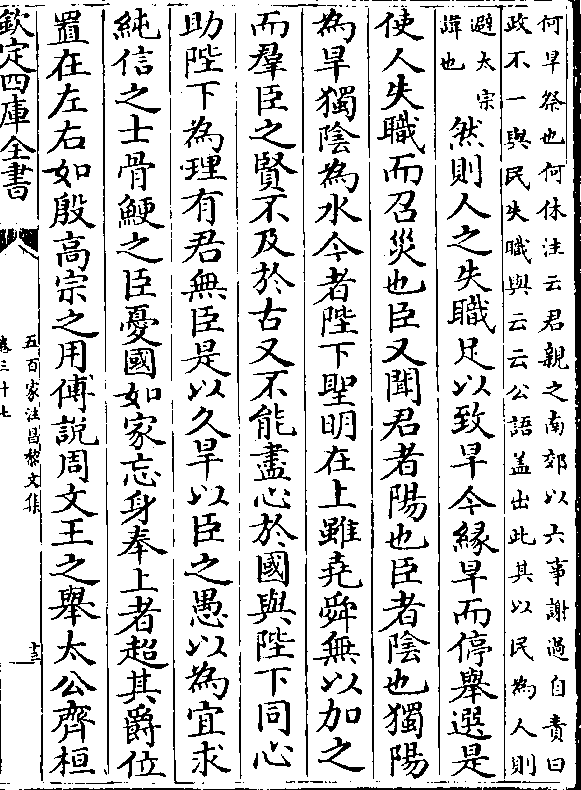 何旱祭也何休注云君親之南郊以六事謝過自責曰
政不一與民失職與云云公語蓋出此其以民為人則
避太宗
諱也
然則人之失職足以致旱今緣旱而停舉選是
使人失職而召災也臣又聞君者陽也臣者陰也獨陽
為旱獨陰為水今者陛下聖明在上雖堯舜無以加之
而羣臣之賢不及於古又不能盡心於國與陛下同心
助陛下為理有君無臣是以久旱以臣之愚以為宜求
純信之士骨鯁之臣憂國如家忘身奉上者超其爵位
置在左右如殷高宗之用傅說周文王之舉太公齊桓
欽定四庫全書
五百家注昌黎文集
卷三十七
十三